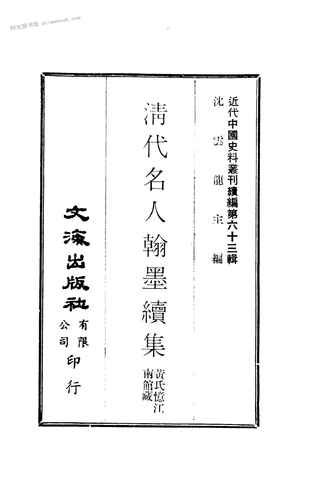 近代中國史料叢刊續編第六十三輯
沈雲龍主編
清代名人翰墨續集
黃氏憶江
南館藏
文海出版社
有限
公司
印行